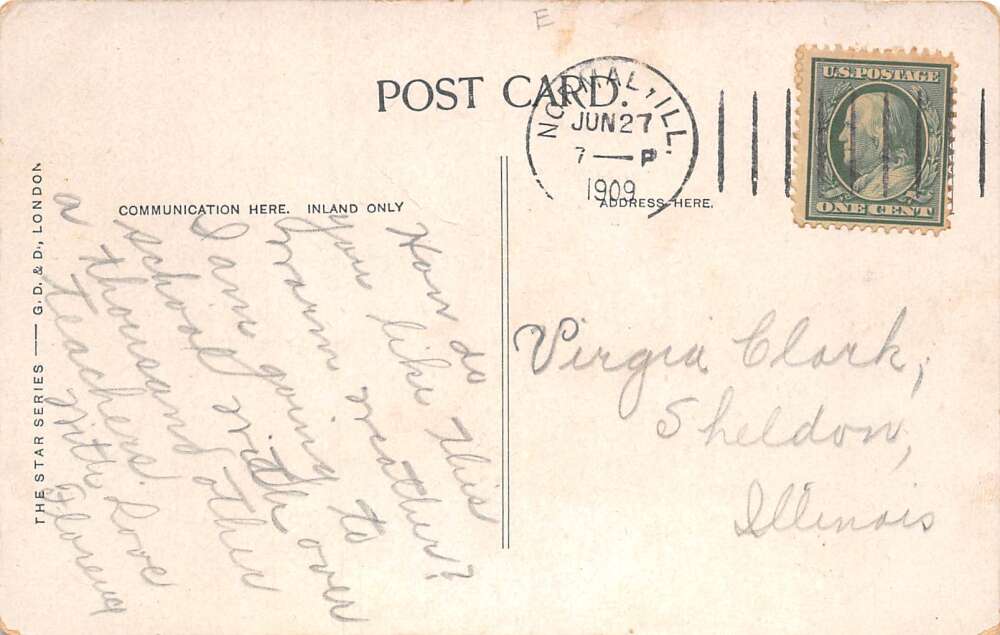 E
POST CARD.
NORMAL, ILL.
JUN 27
7 — P
1909
U.S. POSTAGE
ONE CENT
COMMUNICATION HERE. INLAND ONLY
ADDRESS HERE.
THE STAR SERIES — G. D. & D., LONDON
How do
you like this
warm weather?
I am going to
school with over
a thousand other
teachers.
With Love
Florency
Virgia Clark,
Sheldon,
Illinois